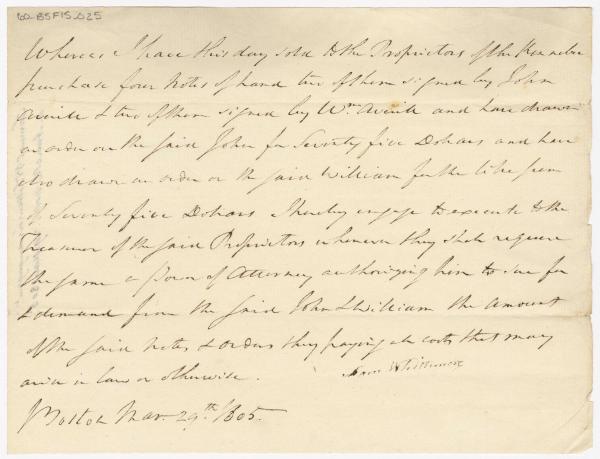 60-BSF15.025
Whereas I have this day sold to the Proprietors of the Kennebec
purchase four Notes of hand two of them signed by John
Averill & two of them signed by Wm. Averill and have drawn
an order on the said John for Seventy five Dollars and have
also drawn an order on the said William for the like sum
of Seventy five Dollars I hereby engage to execute to the
Treasurer of the said Proprietors whenever they shall require
the same a Power of Attorney authorizing him to sue for
& demand from the said John & William the Amount
of the said Notes & orders they paying all costs that may
arise in law or otherwise.
Whittemore
Boston Mar. 29th. 1805.